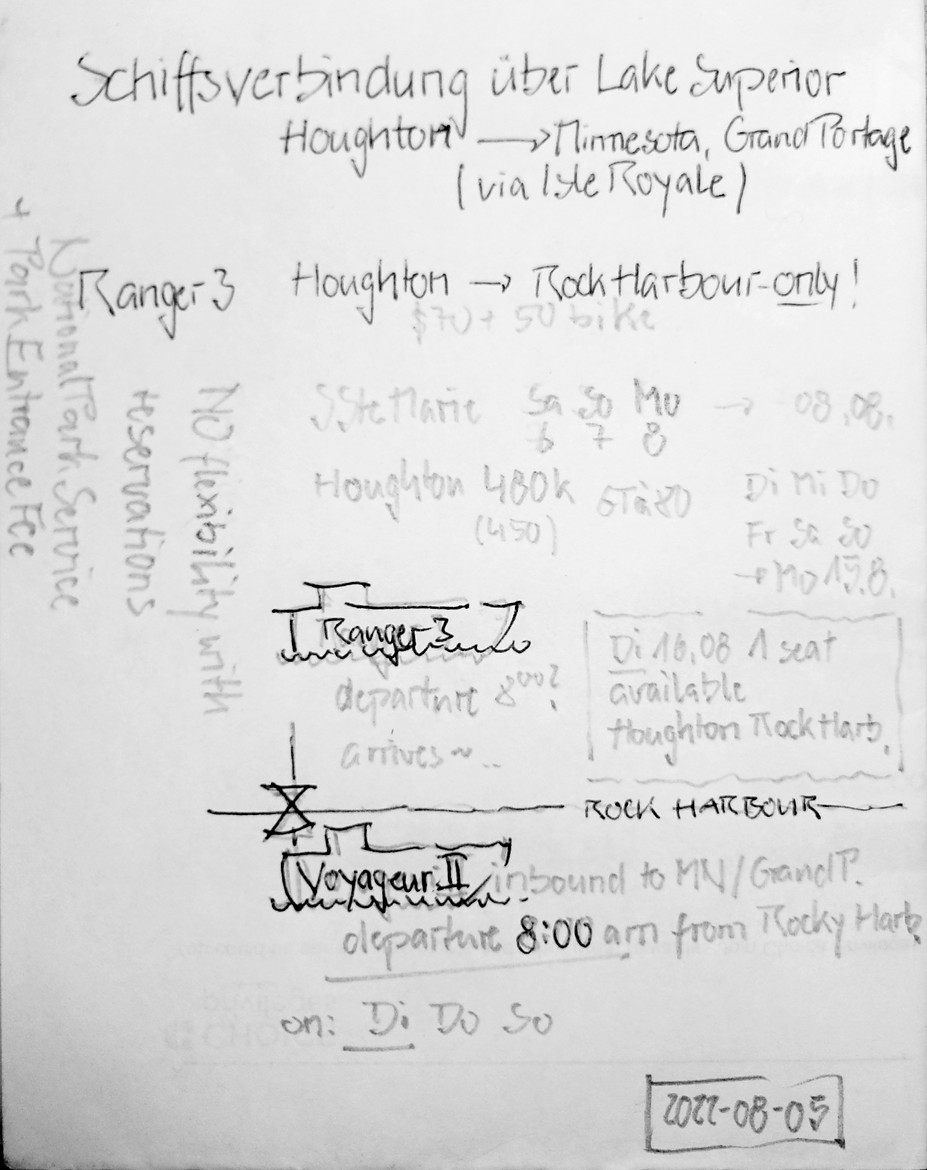 Schiffsverbindung über Lake Superior
Houghton → Minnesota, Grand Portage
(via Isle Royale)
Ranger 3 Houghton → Rock Harbour - only!
$70 + 50 bike
+ Park Entrance Fee
National Park Service
NO flexibility with
reservations
S Ste Marie Sa So Mo → 08.08.
6 7 8
Houghton 480k 6Tà80 Di Mi Do
(450) Fr Sa So
→ Mo 15.8.
Ranger 3
departure 8⁰⁰?
arrives ~ ..
Di 16,08 1 seat
available
Houghton Rock Harb.
ROCK HARBOUR
Voyageur II inbound to MN/Grand P.
departure 8:00 am from Rocky Harb.
on: Di Do So
CHOICE
2022-08-05